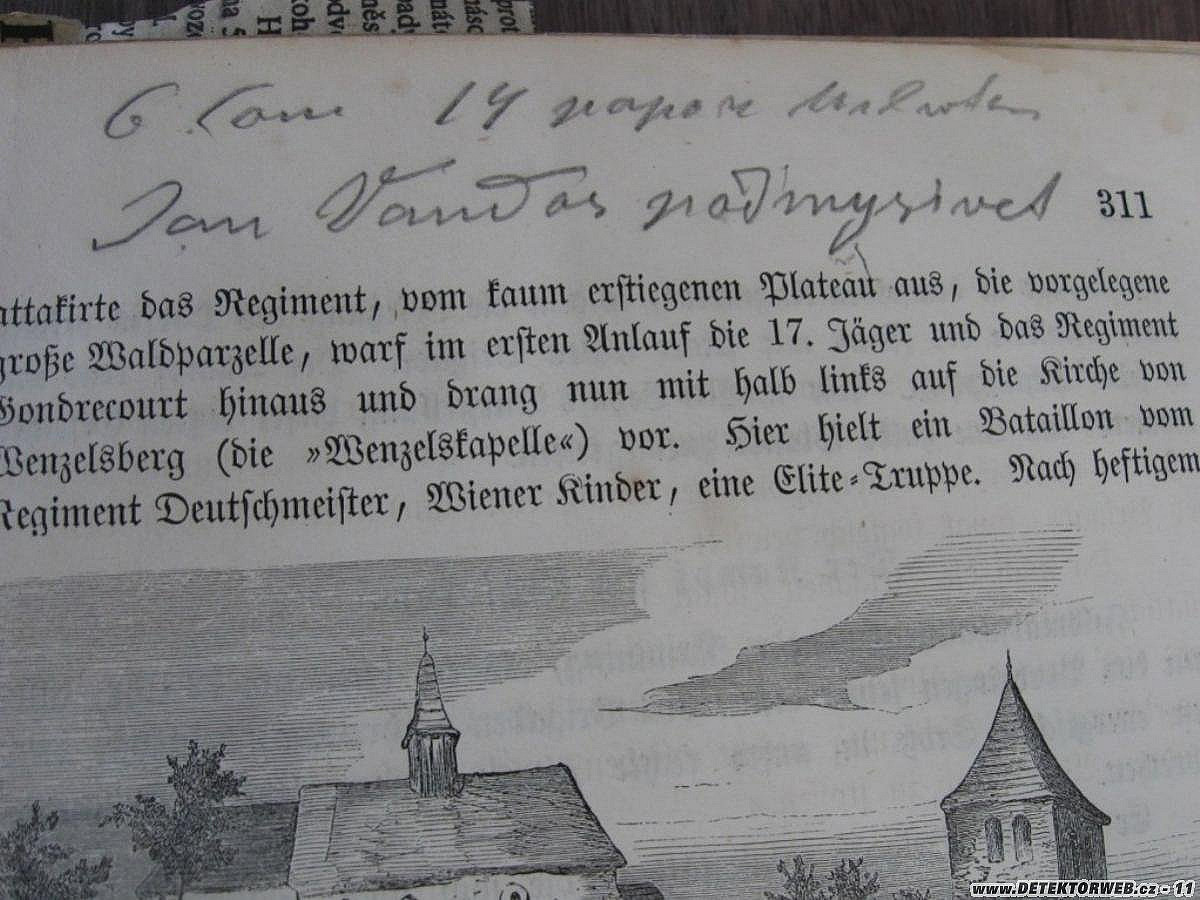 6 Com 14
Jan Vandas podmysivet
311
attakirte das Regiment, vom kaum erstiegenen Plateau aus, die vorgelegene
große Waldparzelle, warf im ersten Anlauf die 17. Jäger und das Regiment
Gondrecourt hinaus und drang nun mit halb links auf die Kirche von
Wenzelsberg (die »Wenzelskapelle«) vor. Hier hielt ein Bataillon vom
Regiment Deutschmeister, Wiener Kinder, eine Elite-Truppe. Nach heftigem
www.DETEKTORWEB.cz - 11